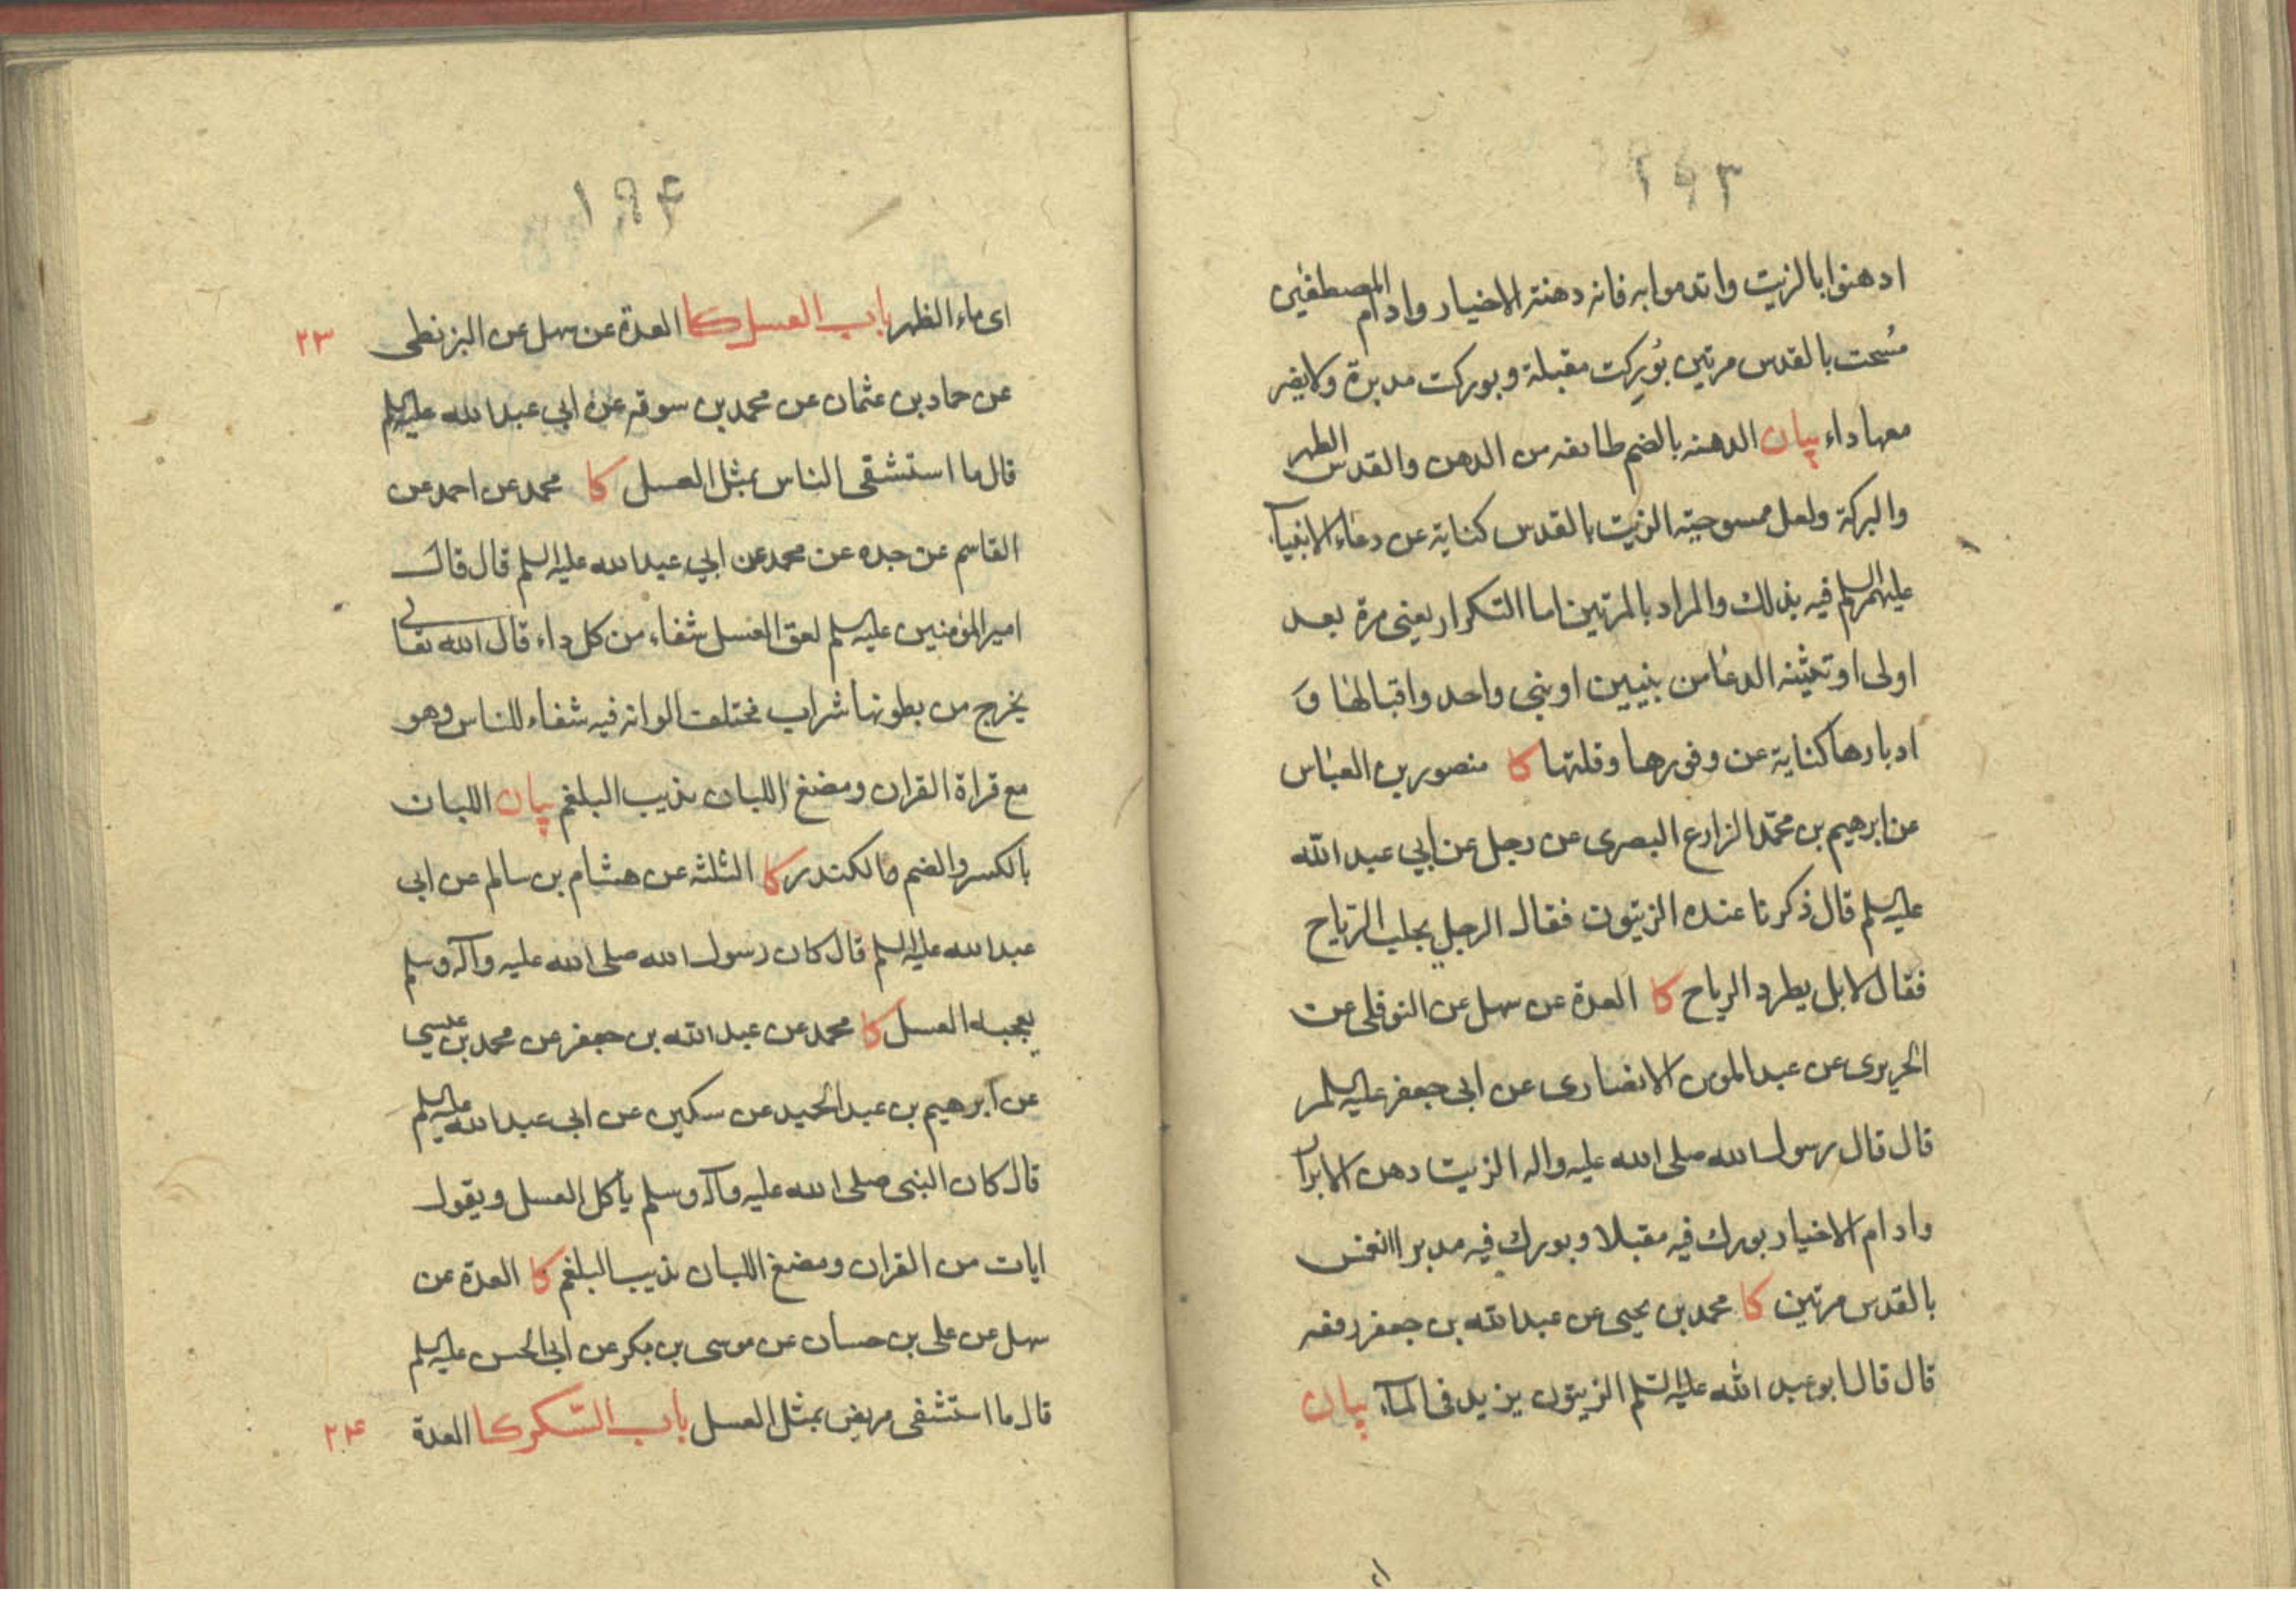 ١٩٣
ادهنوا بالزيت واتدموا به فانه دهنة الاخيار وادام المصطفين
مُسحت بالقدس مرتين بُورِكت مقبلة وبوركت مدبرة ولا يضر
معها داء بيان الدهنه بالضم طايفه من الدهن والقدس الطهر
والبركة ولعل ممسوحيته الزيت بالقدس كناية عن دعاء الانبيآء
عليهم السلم فيه بذلك والمراد بالمرتين اما التكرار يعنى مرة بعد
اولى او تثنيه الدعا من نبيين او نبى واحد واقبالها و
ادبارها كناية عن وفورها وقلتها كا منصور بن العباس
عن ابرهيم بن محمّد الزارع البصرى عن رجل عن ابي عبد الله
عليه السلم قال ذكرنا عنده الزيتون فقال الرجل يجلب الرّياح
فقال لا بل يطرد الرياح كا العدة عن سهل عن النوفلى عن
الجريرى عن عبد المومن الانصارى عن ابى جعفر عليه السلم
قال قال رسول الله صلى الله عليه واله الزيت دهن الابرار
وادام الاخيار بورك فيه مقبلا وبورك فيه مدبرا انغمس
بالقدس مرتين كا محمد بن يحيى عن عبد الله بن جعفر رفعه
قال قال ابو عبد الله عليه السّلم الزيتون يزيد فى المآء بيان
١٩۴
اى ماء الظهر باب العسل كا العدة عن سهل عن البزنطى ٢٣
عن حماد بن عثمان عن محمد بن سوقه عن ابي عبد الله عليه السلم
قال ما استشفى الناس بمثل العسل كا محمد عن احمد عن
القاسم عن جده عن محمد عن ابي عبد الله عليه السلم قال قال
امير المؤمنين عليه السلم لعق العسل شفاء من كل داء قال الله تعالى
يخرج من بطونها شراب مختلف الوانه فيه شفاء للناس وهو
مع قراة القران ومضغ اللبان يذيب البلغم بيان اللبان
بالكسر والضم والكندر كا الثلثه عن هشام بن سالم عن ابى
عبد الله عليه السلم قال كان رسول الله صلى الله عليه وآله وسلم
يعجبه العسل كا محمد عن عبد الله بن جعفر عن محمد بن عيسى
عن ابرهيم بن عبد الحميد عن سكين عن ابى عبد الله عليه السلم
قال كان النبى صلى الله عليه وآله وسلم يأكل العسل ويقول
ايات من القران ومضغ اللبان يذيب البلغم كا العدة عن
سهل عن على بن حسان عن موسى بن بكر عن ابى الحسن عليه السلم
قال ما استشفى مريض بمثل العسل باب السّكر كا العدة ٢۴